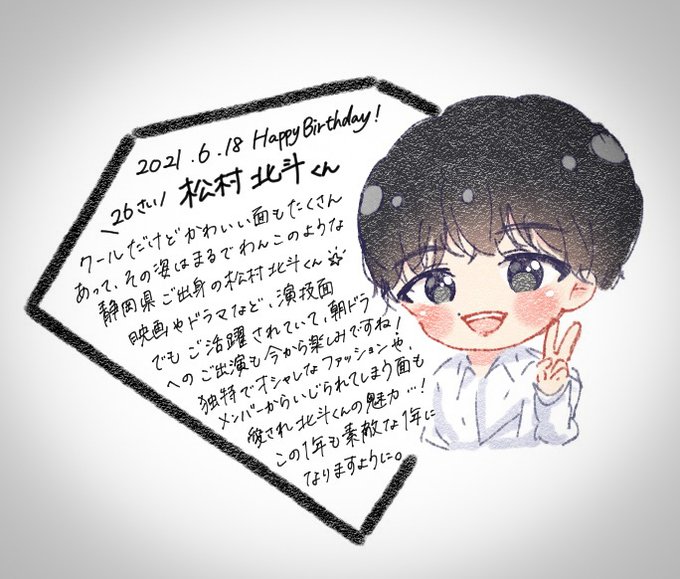 2021.6.18 Happy Birthday!
\26さい/ 松村北斗くん
クールだけどかわいい面もたくさん
あって、その姿はまるでわんこのような
静岡県ご出身の松村北斗くん☆
映画やドラマなど、演技面
でもご活躍されていて、朝ドラ
へのご出演も今から楽しみですね!
独特でオシャレなファッションや、
メンバーからいじられてしまう面も
愛され北斗くんの魅力…!
この1年も素敵な1年に
なりますように。